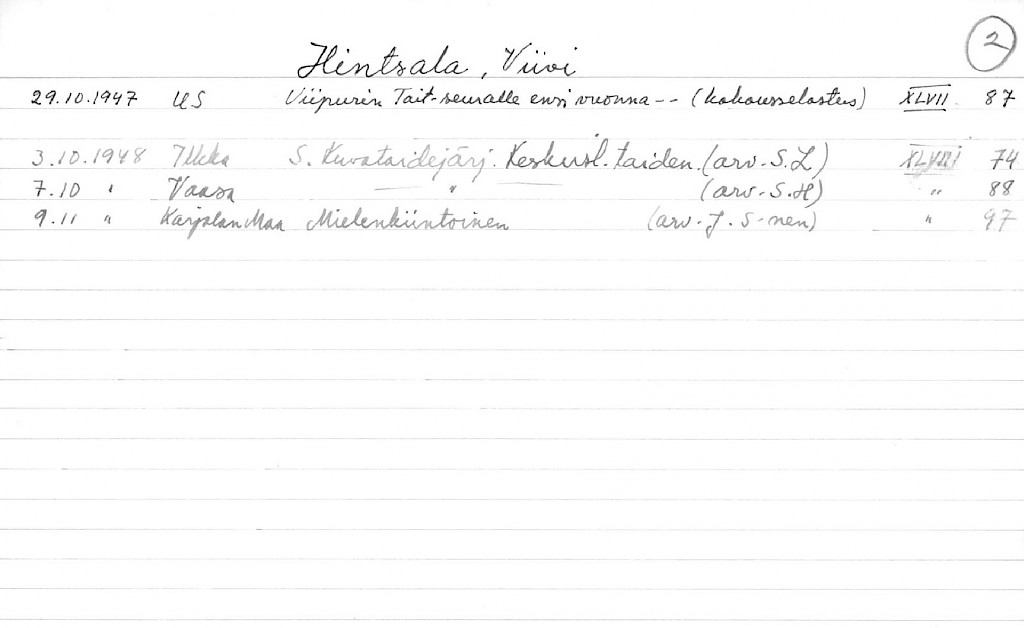 2
Hintsala, Viivi
29.10.1947 US Viipurin Tait-seuralle ensi vuonna -- (kokousselostus) XLVII 87
3.10.1948 Ilkka S. Kuvataidejärj. Keskusl. taiden. (arv. S.L) XLVIII 74
7.10 " Vaasa — " — (arv. S.H) " 88
9.11 " Karjalan Maa Mielenkiintoinen (arv. J. S-nen) " 97